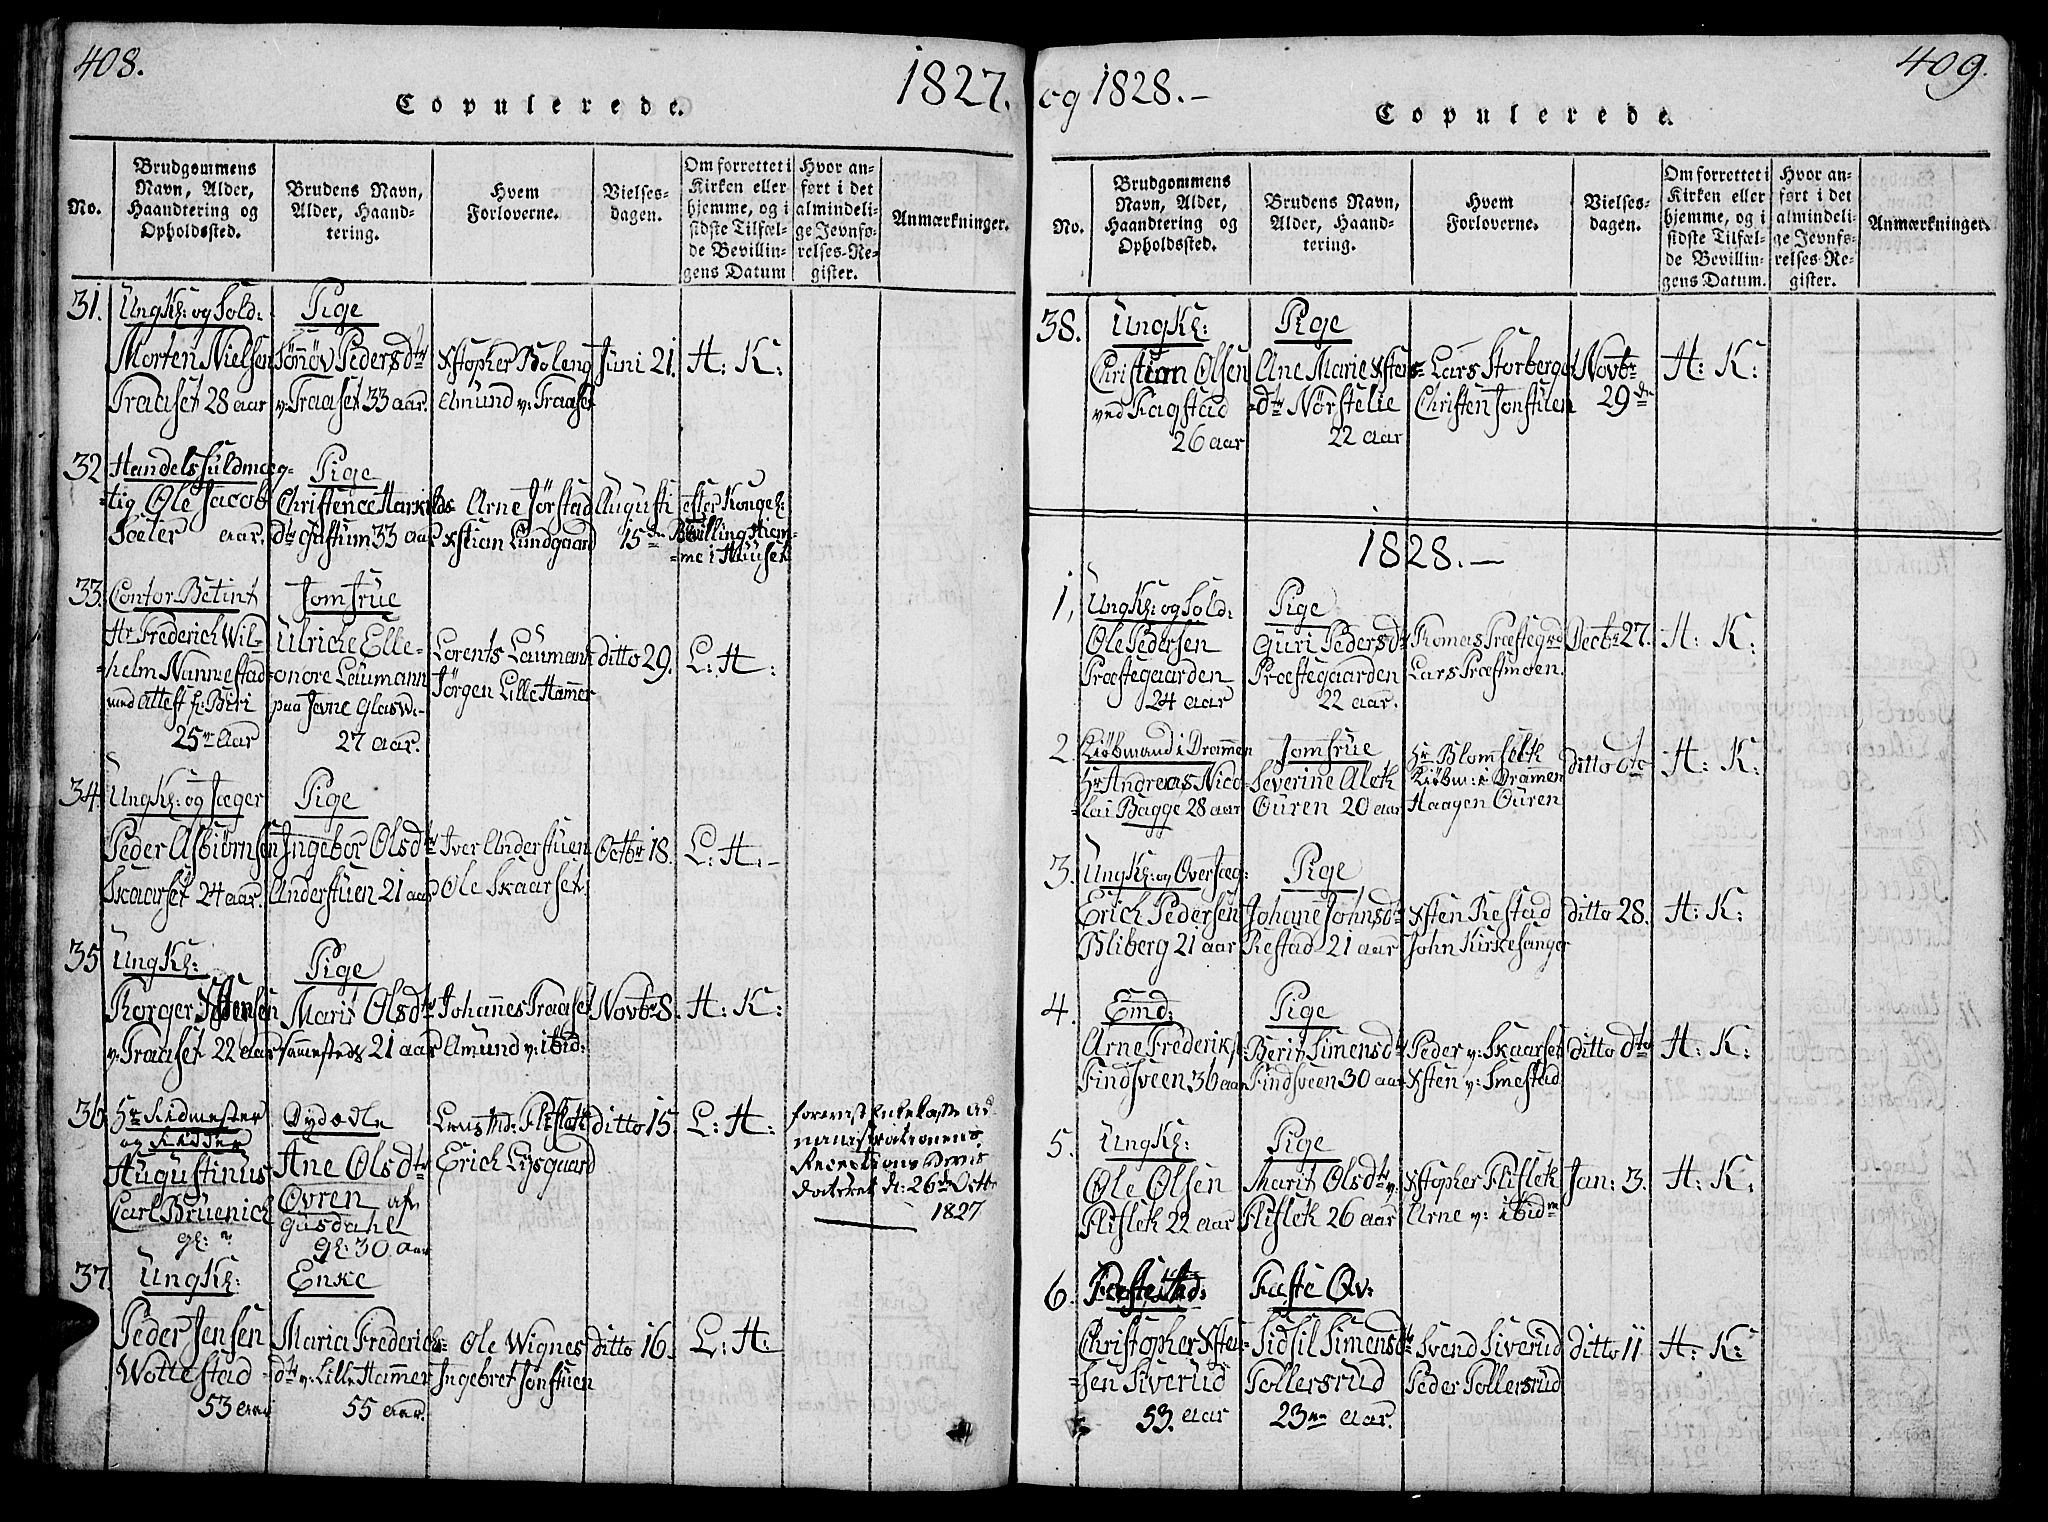 408.
Copulerede.
1827.
No.
Brudgommens Navn, Alder, Haandtering og Opholdssted.
Brudens Navn, Alder, Haandtering.
Hvem Forloverne.
Vielsesdagen.
Om forrettet i Kirken eller hjemme, og i sidste Tilfælde Bevillingens Datum
Hvor anført i det almindelige Jevnførelses-Register.
Anmærkninger.
31.
UngK: og Sold:
Morten Nielsen
Traaset 28 aar
Pige
Sönnöv Pedersdtr
v: Traaset 33 aar.
Xstopher Boleng
Amund v: Traaset
Juni 21.
H: K:
32
Handelsfuldmæg-
tig Ole Jacob
Soeler aar.
Pige
Christence Harkilds
dtr Justum 33 aar
Arne Jörstad
Xstian Lundgaard
Augusti
15de
efter Kongel:
Bevilling Hiem-
me i Huuset
33.
Contor Betint
Hr Frederich Wil-
helm Nannestad
med Attest fr: Biri
25 aar
Jomfrue
Ulriche Elle-
onore Laumann
paa Jevne Glasw.
27 aar.
Lorents Laumann
Jörgen LilleHammer
ditto 29.
L: H:
34.
UngK: og Jæger
Peder Asbiörnsen
Skaarset 24 aar.
Pige
Ingebor Olsdtr
Anderstuen 21 aar
Iver Anderstuen
Ole Skaarset.
Octbr 18.
L: H:-
35
UngK:
Torger Xstensen
v: Traaset 22 aar
Pige
Marit Olsdtr
Sammesteds 21 aar
Johannes Traaset
Amund v: ibid:
Novbr 8.
H: K:
36
Hr Ridmester
og Ridder
Augustinus
Carl Bruenich
gl:
Dydædle
Ane Olsdtr
Ovren af
Gusdahl
gl: 30 aar
Lens Md: Fliflek
Erich Lysgaard
ditto 15.
L: H:
forevist Enkekasse Ad-
ministrationens
Receptions Bevis
dateret d: 26de Octb
1827
37.
UngK:
Peder Jensen
Wottestad
53 aar
Enke
Maria Frederichs-
dtr v: LilleHammer
55 aar.
Ole Wignes
Ingebret Jonstuen
ditto 16.
L: H:
409.
og 1828.-
Copulerede.
No.
Brudgommens Navn, Alder, Haandtering og Opholdssted.
Brudens Navn, Alder, Haandtering.
Hvem Forloverne.
Vielsesdagen.
Om forrettet i Kirken eller hjemme, og i sidste Tilfælde Bevillingens Datum.
Hvor anført i det almindelige Jevnførelses-Register.
Anmærkninger.
38.
UngK:
Christian Olsen
ved Kagstad
26 aar
Pige
Ane Marie Xstens-
dtr Nörstelie
22 aar
Lars Storberget
Christen Jonstuen
Novbr
29de
H: K:
1828.-
1,
UngK: og Sold:
Ole Pedersen
Præstegaarden
24 aar
Pige
Guri Pedersdtr
Præstegaarden
22 aar.
Tomas Præstegrd
Lars Præstmoen.
Decbr 27.
H: K:
2.
Kiöbmand i Drammen
Hr Andreas Nico-
lai Bagge 28 aar
Jomfrue
Severine Alek
Ouren 20 aar
Hr Blom
Kiöbm: i Dramen
Haagen Ouren
ditto dto
H: K:
3.
UngK: og OverJæg:
Erich Pedersen
Bliberg 21 aar
Pige
Johane Johnsdtr
Restad 21 aar
Xsten Restad
John Kirkesanger
ditto 28.
H: K:
4.
Emd:
Arne Frederiks:
Findsveen 36 aar
Pige
Berit Simensdtr
Findsveen 30 aar
Peder v: Skaarset
Xsten v: Smestad
ditto dto
H: K:
5.
UngK:
Ole Olsen
Fliflek 22 aar
Pige
Marit Olsdtr v:
Fliflek 26 aar
Xstopher Fliflek
Arne v: ibidm
Jan: 3.
H: K:
6.
Christopher Xsten-
sen Siverud
53. aar
Faste Qv:
Sidsil Simensdtr
Tollersrud
23 aar.
Svend Siverud
Peder Tollersrud
Ditto 11
H: K: